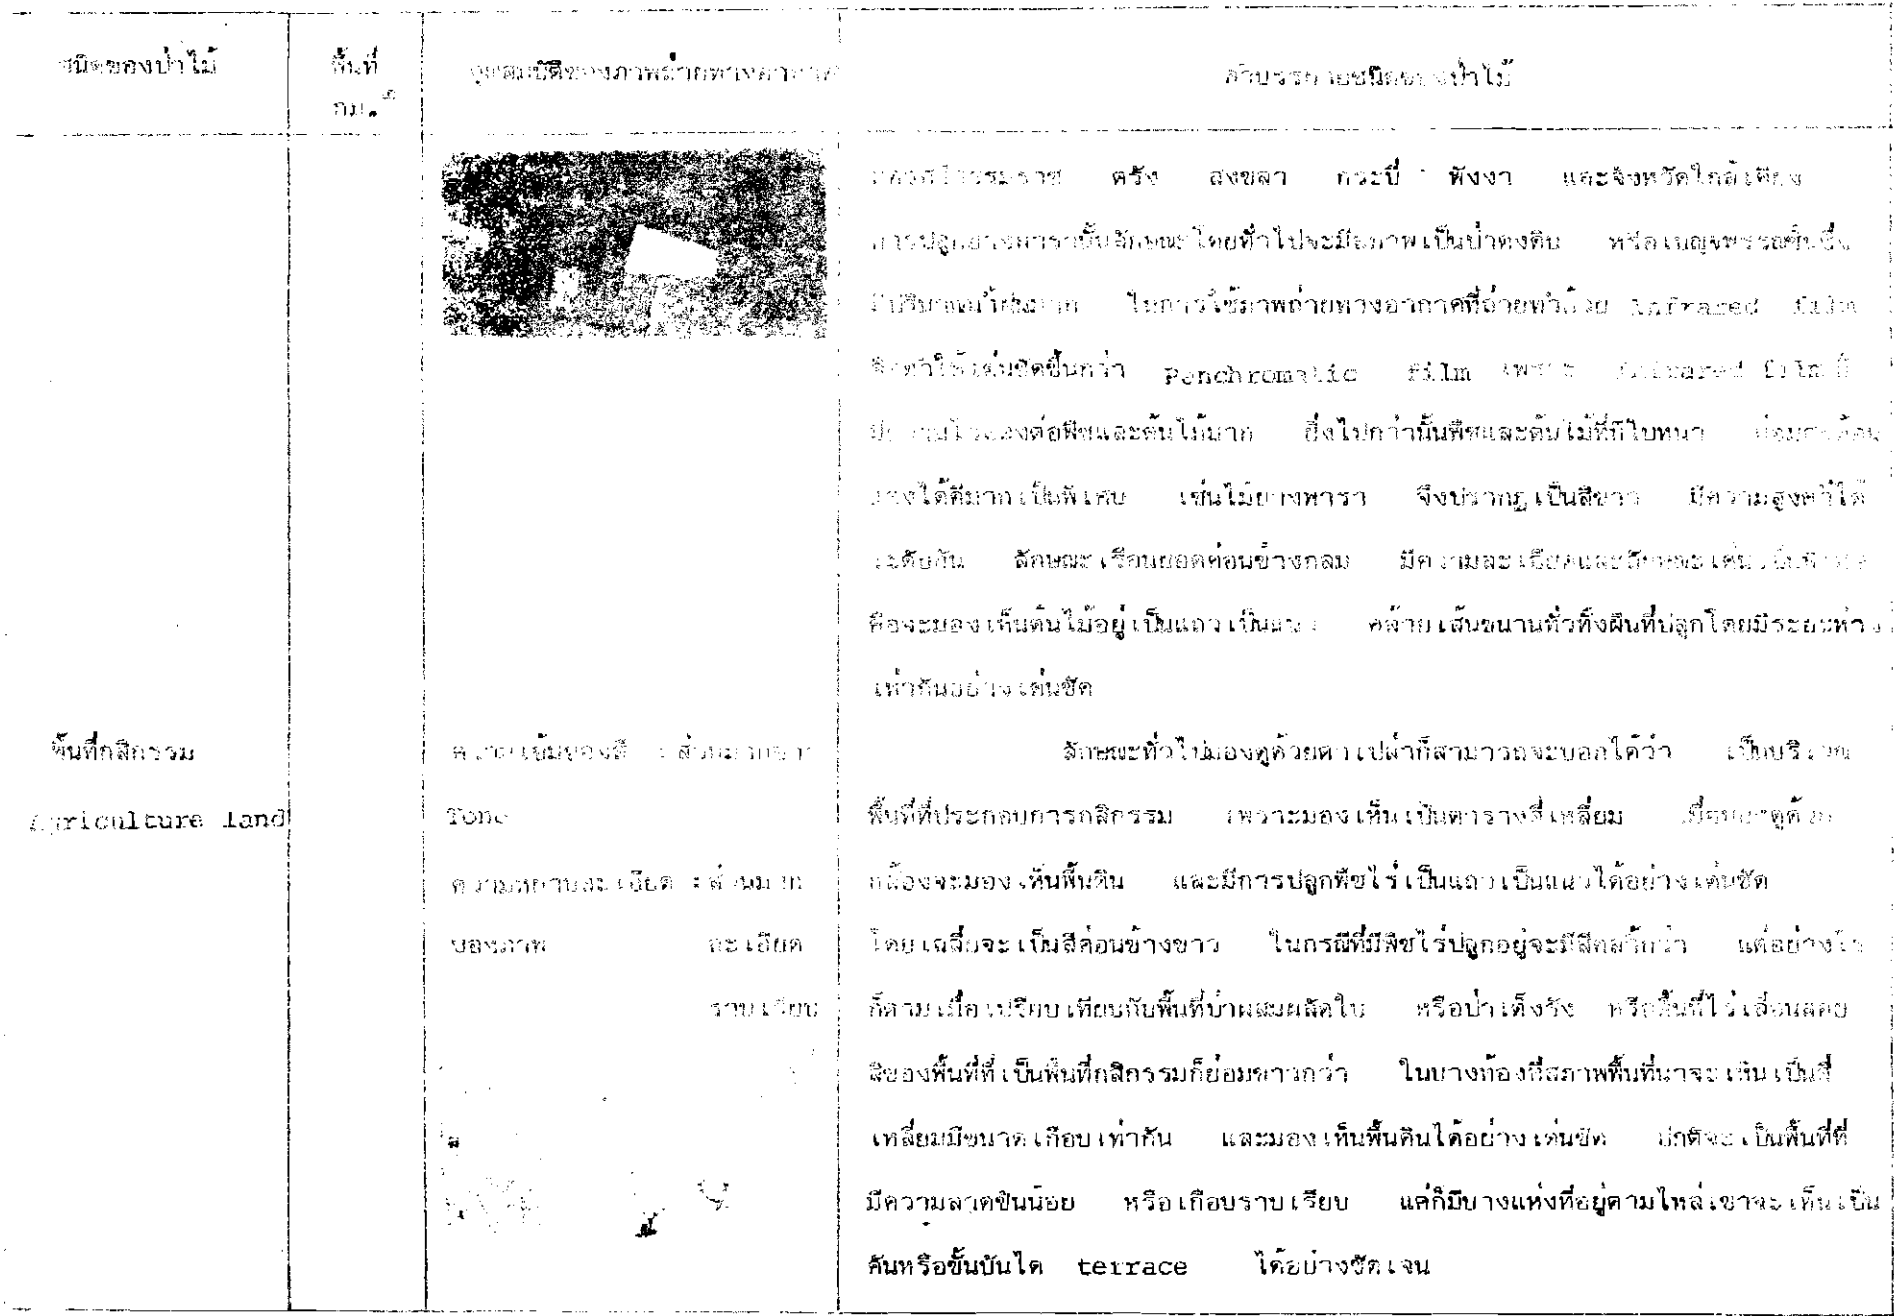 ชนิดของป่าไม้
พื้นที่
กม.๒
คุณสมบัติของภาพถ่ายทางอากาศ
คำบรรยายชนิดของป่าไม้
นครศรีธรรมราช ตรัง สงขลา กระบี่ พังงา และจังหวัดใกล้เคียง
การปลูกยางพารานั้นลักษณะโดยทั่วไปจะมีสภาพเป็นป่าดงดิบ หรือเบญจพรรณชื้นซึ่ง
มีปริมาณน้ำฝนมาก ในการใช้ภาพถ่ายทางอากาศที่ถ่ายทำด้วย Infrared film
จึงทำให้เด่นชัดขึ้นกว่า Panchromatic film เพราะ Infrared film นี้
มีความไวแสงต่อพืชและต้นไม้มาก ยิ่งไปกว่านั้นพืชและต้นไม้ที่มีใบหนา ย่อมสะท้อน
แสงได้ดีมากเป็นพิเศษ เช่นไม้ยางพารา จึงปรากฏเป็นสีขาว มีความสูงต่ำได้
ระดับกัน ลักษณะเรือนยอดค่อนข้างกลม มีความละเอียดและลักษณะเด่นเป็นพิเศษ
คือจะมองเห็นต้นไม้อยู่เป็นแถวเป็นแนว คล้ายเส้นขนานทั่วทั้งผืนที่ปลูกโดยมีระยะห่าง
เท่ากันอย่างเด่นชัด
พื้นที่กสิกรรม
Agriculture land
ความเข้มของสี : ส่วนมากขาว
Tone
ความหยาบละเอียด : ส่วนมาก
ของภาพ ละเอียด
ราบเรียบ
ลักษณะทั่วไปมองดูด้วยตาเปล่าก็สามารถจะบอกได้ว่า เป็นบริเวณ
พื้นที่ที่ประกอบการกสิกรรม เพราะมองเห็นเป็นตารางสี่เหลี่ยม เมื่อมองดูด้วย
กล้องจะมองเห็นพื้นดิน และมีการปลูกพืชไร่เป็นแถวเป็นแนวได้อย่างเด่นชัด
โดยเฉลี่ยจะเป็นสีค่อนข้างขาว ในกรณีที่มีพืชไร่ปลูกอยู่จะมีสีคล้ำกว่า แต่อย่างไร
ก็ตามเมื่อเปรียบเทียบกับพื้นที่ป่าผสมผลัดใบ หรือป่าเต็งรัง หรือพื้นที่ไร่เลื่อนลอย
สีของพื้นที่ที่เป็นพื้นที่กสิกรรมก็ย่อมขาวกว่า ในบางท้องที่สภาพพื้นที่นาจะเห็นเป็นสี่
เหลี่ยมมีขนาดเกือบเท่ากัน และมองเห็นพื้นดินได้อย่างเด่นชัด ปกติจะเป็นพื้นที่ที่
มีความลาดชันน้อย หรือเกือบราบเรียบ แต่ก็มีบางแห่งที่อยู่ตามไหล่เขาจะเห็นเป็น
คันหรือขั้นบันได terrace ได้อย่างชัดเจน